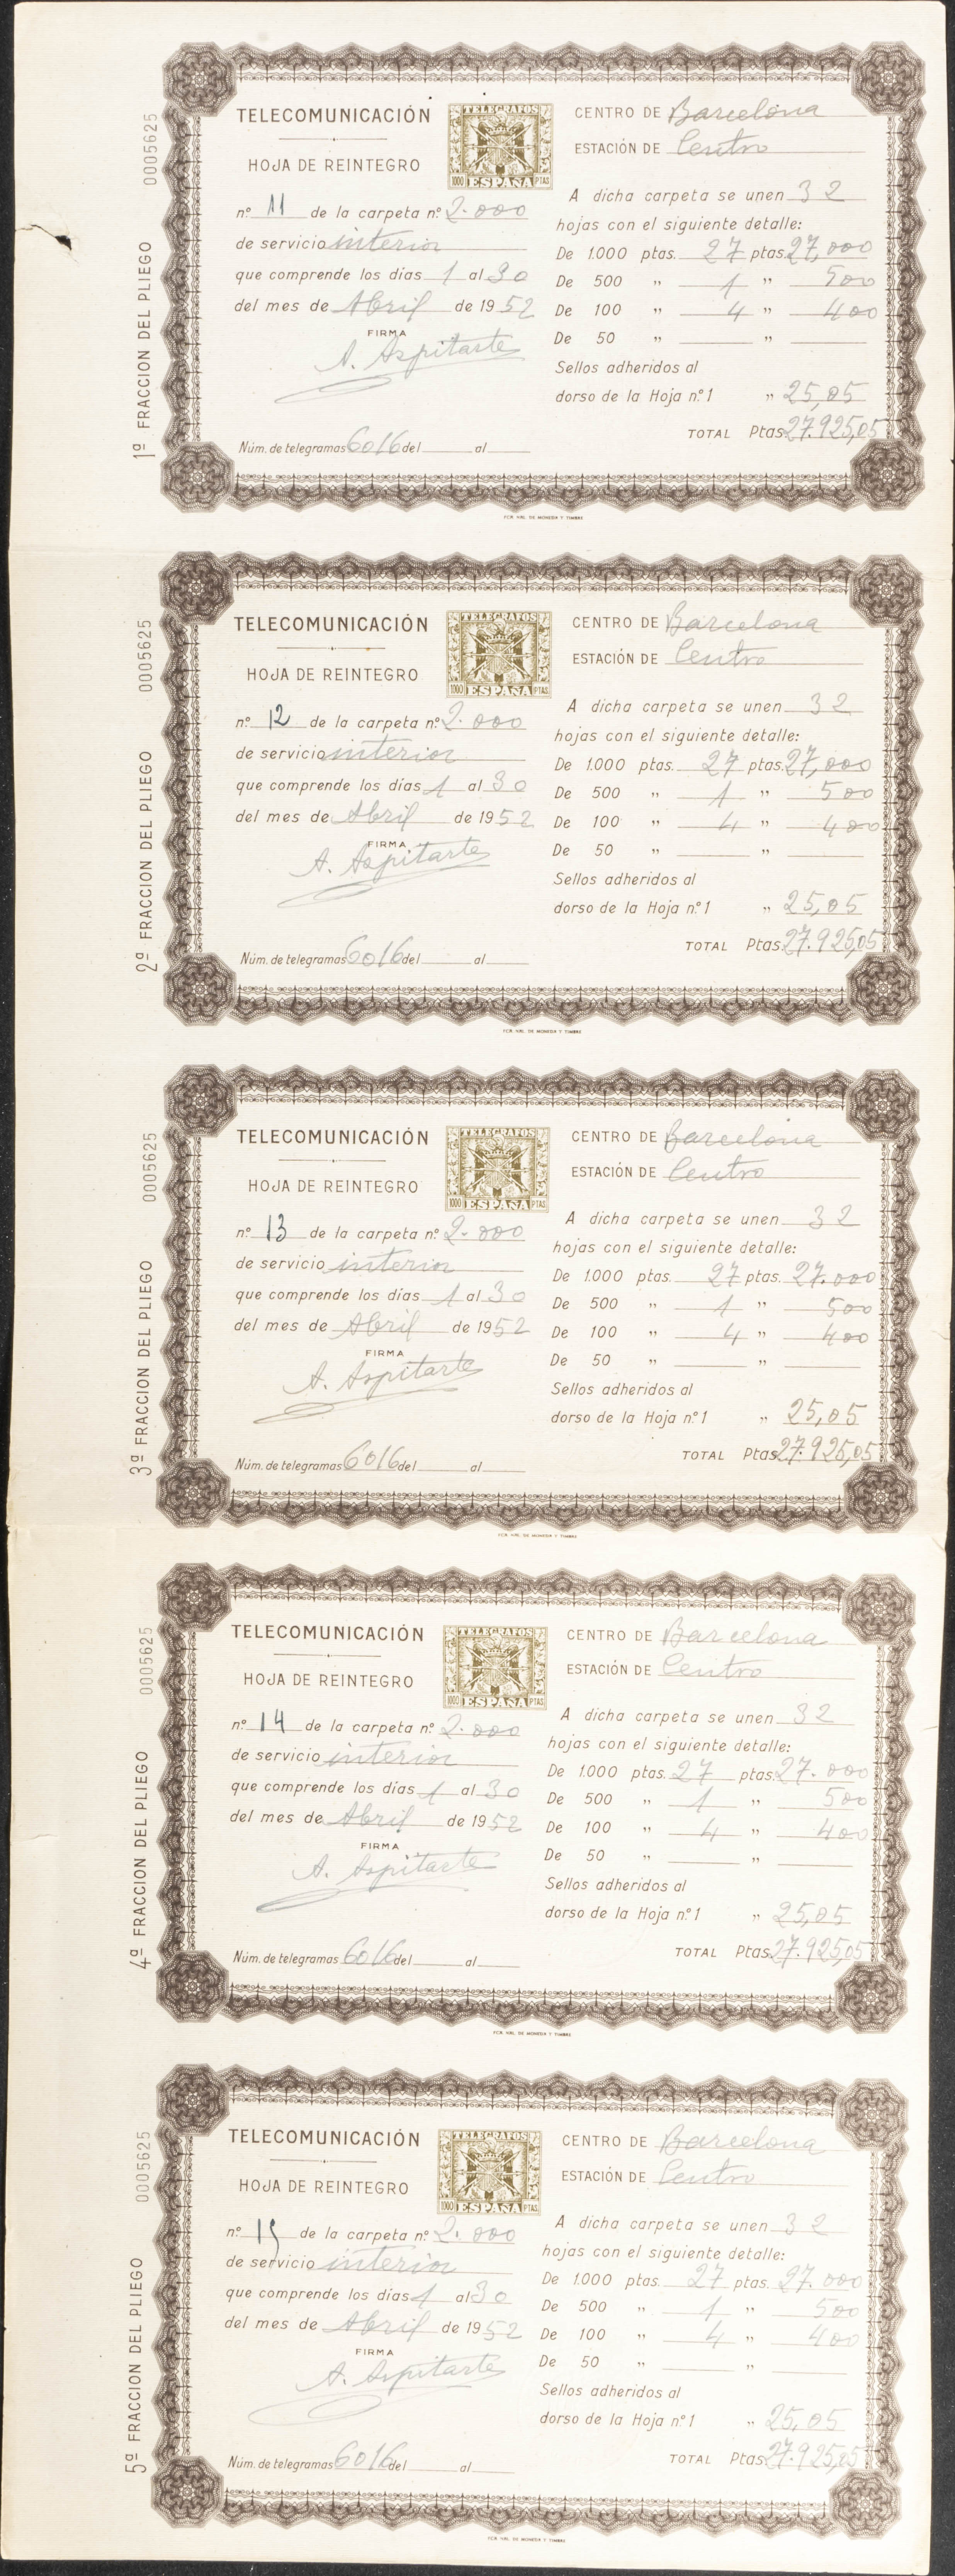 0005625
1ª FRACCION DEL PLIEGO
TELECOMUNICACIÓN
HOJA DE REINTEGRO
nº 11 de la carpeta nº 2.000
de servicio interior
que comprende los días 1 al 30
del mes de Abril de 1952
FIRMA
A. Aspitarte
Núm. de telegramas 6016 del al
TELEGRAFOS
1000 ESPAÑA PTAS
CENTRO DE Barcelona
ESTACIÓN DE Centro
A dicha carpeta se unen 32
hojas con el siguiente detalle:
De 1.000 ptas. 27 ptas. 27,000
De 500 " 1 " 500
De 100 " 4 " 400
De 50 " "
Sellos adheridos al
dorso de la Hoja nº 1 " 25,05
TOTAL Ptas. 27.925,05
FCA. NAL. DE MONEDA Y TIMBRE
0005625
2ª FRACCION DEL PLIEGO
TELECOMUNICACIÓN
HOJA DE REINTEGRO
nº 12 de la carpeta nº 2.000
de servicio interior
que comprende los días 1 al 30
del mes de Abril de 1952
FIRMA
A. Aspitarte
Núm. de telegramas 6016 del al
TELEGRAFOS
1000 ESPAÑA PTAS
CENTRO DE Barcelona
ESTACIÓN DE Centro
A dicha carpeta se unen 32
hojas con el siguiente detalle:
De 1.000 ptas. 27 ptas. 27,000
De 500 " 1 " 500
De 100 " 4 " 400
De 50 " "
Sellos adheridos al
dorso de la Hoja nº 1 " 25,05
TOTAL Ptas. 27.925,05
FCA. NAL. DE MONEDA Y TIMBRE
0005625
3ª FRACCION DEL PLIEGO
TELECOMUNICACIÓN
HOJA DE REINTEGRO
nº 13 de la carpeta nº 2.000
de servicio interior
que comprende los días 1 al 30
del mes de Abril de 1952
FIRMA
A. Aspitarte
Núm. de telegramas 6016 del al
TELEGRAFOS
1000 ESPAÑA PTAS
CENTRO DE Barcelona
ESTACIÓN DE Centro
A dicha carpeta se unen 32
hojas con el siguiente detalle:
De 1.000 ptas. 27 ptas. 27.000
De 500 " 1 " 500
De 100 " 4 " 400
De 50 " "
Sellos adheridos al
dorso de la Hoja nº 1 " 25,05
TOTAL Ptas. 27.925,05
FCA. NAL. DE MONEDA Y TIMBRE
0005625
4ª FRACCION DEL PLIEGO
TELECOMUNICACIÓN
HOJA DE REINTEGRO
nº 14 de la carpeta nº 2.000
de servicio interior
que comprende los días 1 al 30
del mes de Abril de 1952
FIRMA
A. Aspitarte
Núm. de telegramas 6016 del al
TELEGRAFOS
1000 ESPAÑA PTAS
CENTRO DE Barcelona
ESTACIÓN DE Centro
A dicha carpeta se unen 32
hojas con el siguiente detalle:
De 1.000 ptas. 27 ptas. 27.000
De 500 " 1 " 500
De 100 " 4 " 400
De 50 " "
Sellos adheridos al
dorso de la Hoja nº 1 " 25,05
TOTAL Ptas. 27.925,05
FCA. NAL. DE MONEDA Y TIMBRE
0005625
5ª FRACCION DEL PLIEGO
TELECOMUNICACIÓN
HOJA DE REINTEGRO
nº 15 de la carpeta nº 2.000
de servicio interior
que comprende los días 1 al 30
del mes de Abril de 1952
FIRMA
A. Aspitarte
Núm. de telegramas 6016 del al
TELEGRAFOS
1000 ESPAÑA PTAS
CENTRO DE Barcelona
ESTACIÓN DE Centro
A dicha carpeta se unen 32
hojas con el siguiente detalle:
De 1.000 ptas. 27 ptas. 27.000
De 500 " 1 " 500
De 100 " 4 " 400
De 50 " "
Sellos adheridos al
dorso de la Hoja nº 1 " 25,05
TOTAL Ptas. 27.925,05
FCA. NAL. DE MONEDA Y TIMBRE